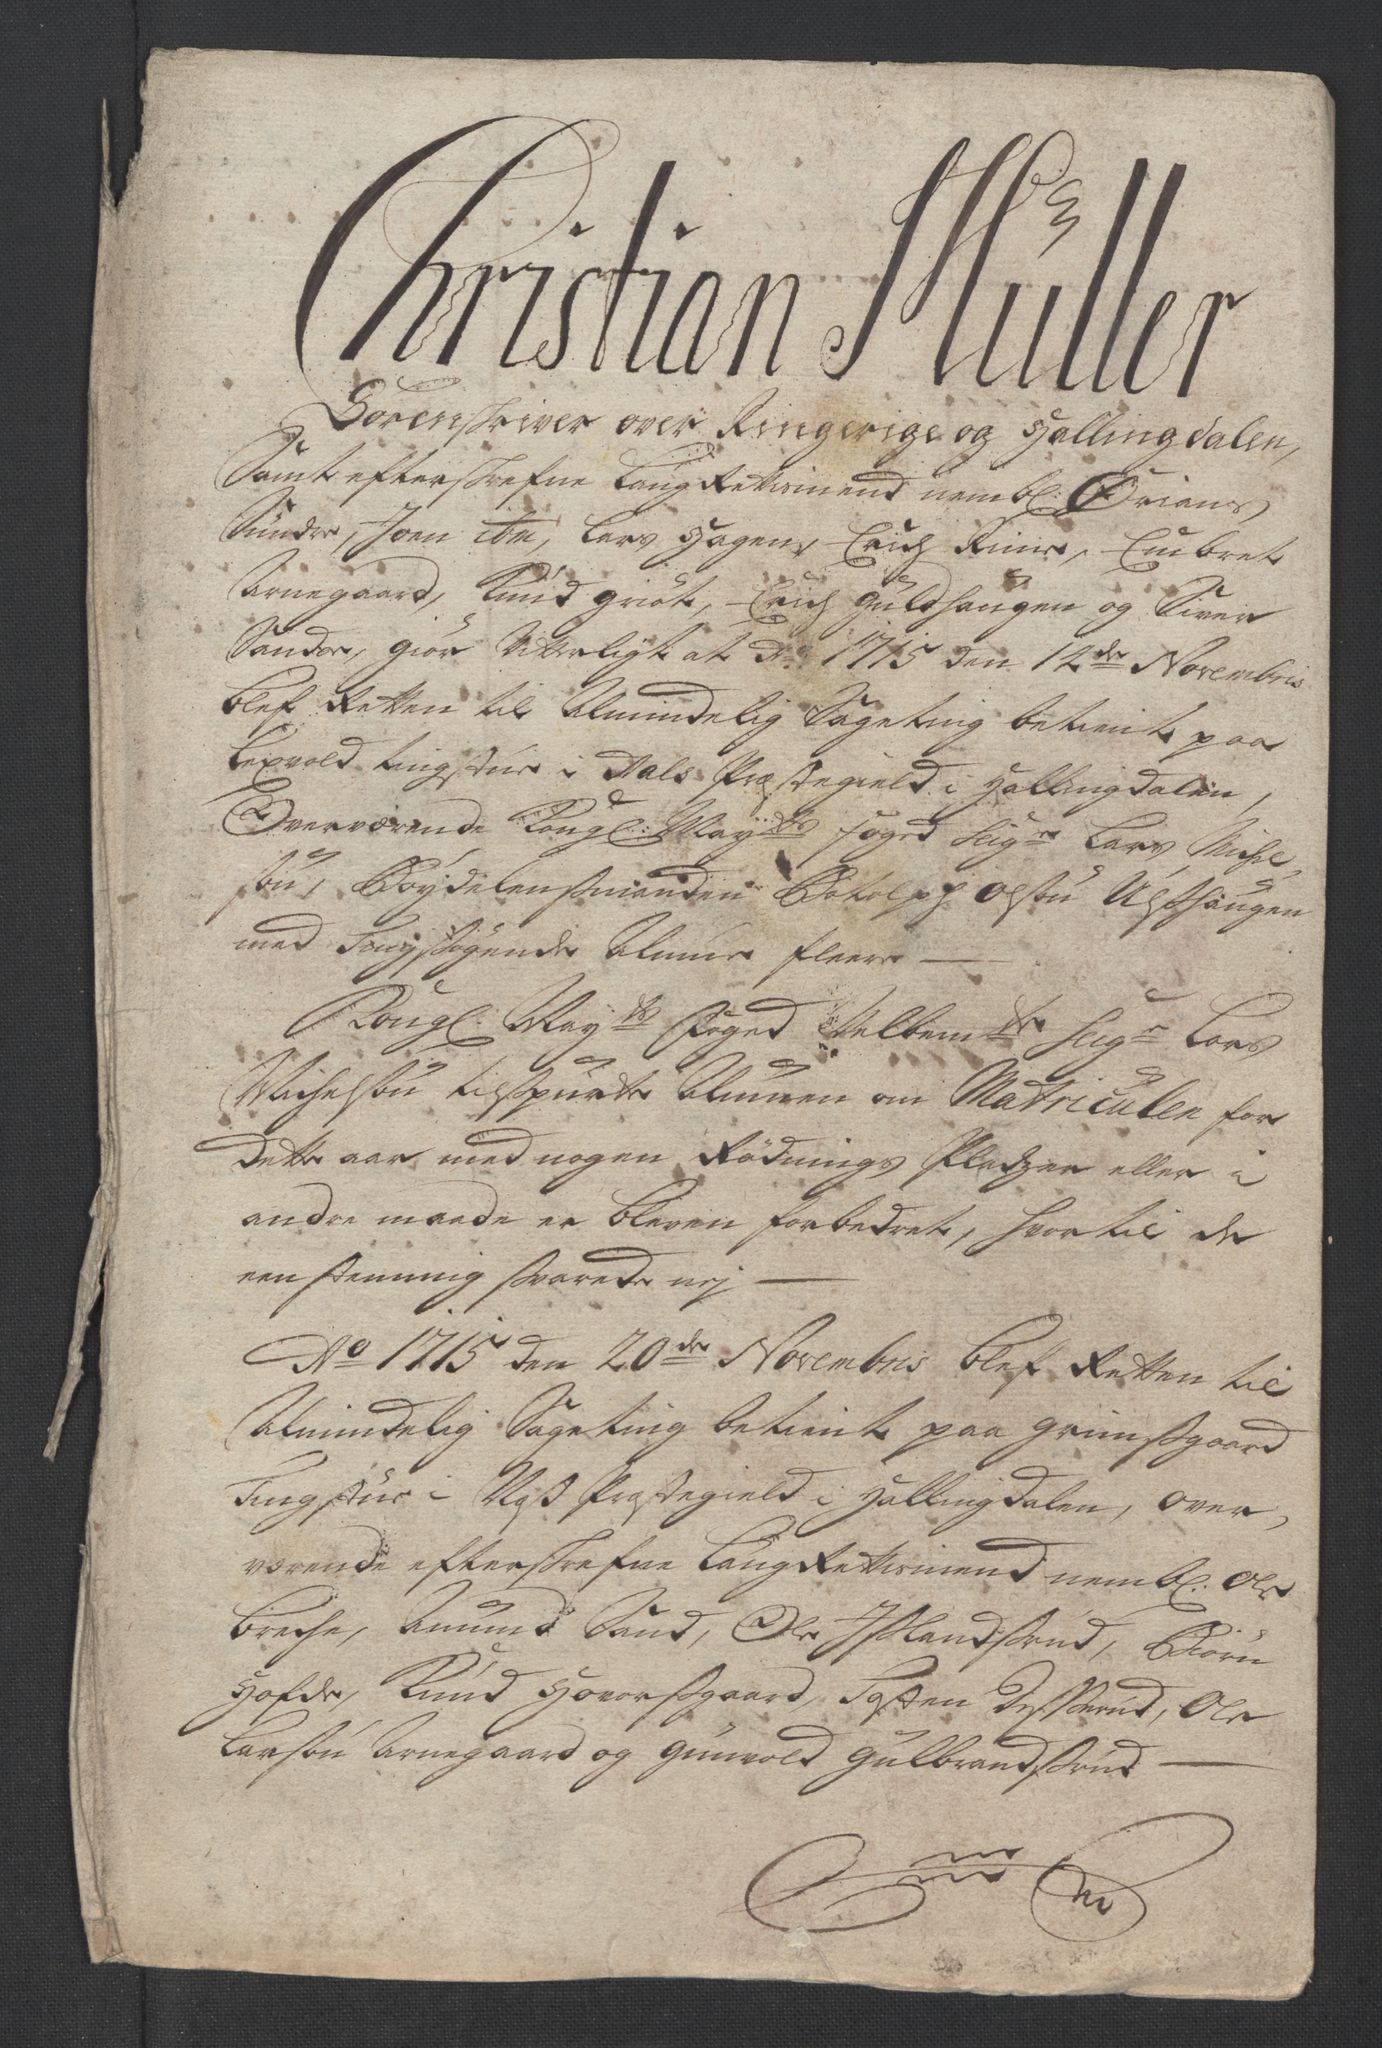 Christian Müller
Sorenskriver over Ringerige og Hallingdalen,
Samt efterskrefne Laug Rettismend nembl: Brian
Sundre, Joen ibm, Lars Hagen, Erich Rime, Embret
Arnegaard, Knud Griøt, Erich Guldhaugen og Siver
Sandoe, giør Vitterligt at Ao 1715 den 12de Novembris
blef Retten til Almindelig Sageting betient paa
Lexvold tingstue i Aals Præstegield i Hallingdalen,
Overværende Kongl: May:ts foged Sigr Lars Michel,
søn, Bøydelensmanden Botolph Olsøn Ulshaugen
med Tingsøgende Almue fleere —
Kongl: May:ts Foged Velbemte Sigr Lars
Michelsøn tilspurte Almuen om Matriculen for
dette aar med nogen Rødnings Pladzer eller i
andre maade er bleven forbedret, hvortil de
eenstemmig svarede nej —
Ao 1715 den 20de Novembris blef Retten til
Almindelig Sageting betient paa Grimsgaard
Tingstue i Næss Præstegield i Hallingdalen, over,
værende efterskrefne Laug Rettismend nembl: Ole
Breche, Amund Sand, Ole Islandsrud, Biørn
Hofde, Knud Hovorsgaard, Tosten Desserud, Ole
Larsøn Arnegaard og Gunvold Gulbrandsrud —